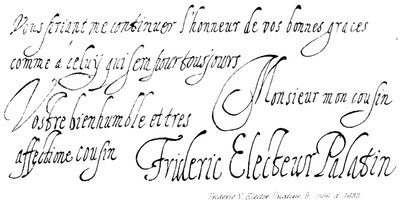 Vous priant me continuer l'honneur de vos bonnes graces
comme a celuÿ qui sera pour tousjours
Monsieur mon cousin
Vostre bien humble et tres
affectione cousin
Frideric Electeur Palatin
Frederic V. Elector Palatine B. 1596 d. 1632